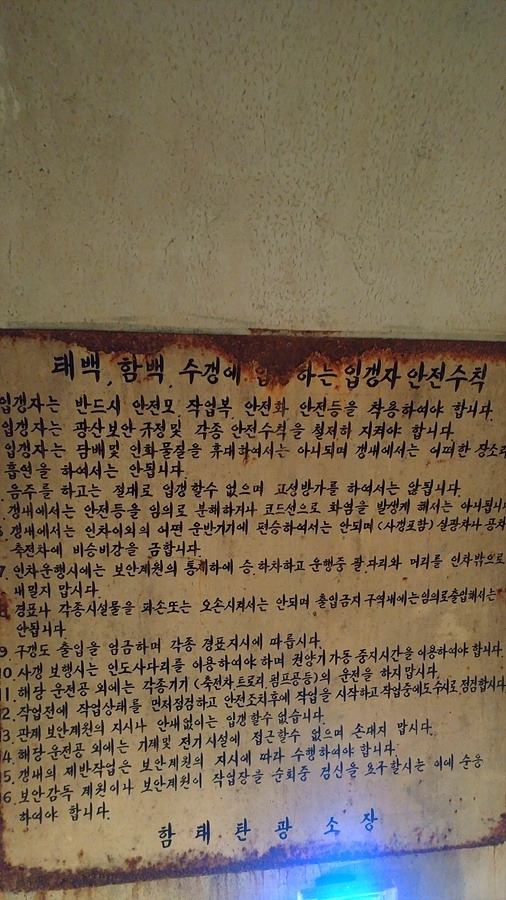 태백, 함백 수갱에 입 하는 입갱자 안전수칙
입갱자는 반드시 안전모, 작업복, 안전화 안전등을 착용하여야 합니다.
입갱자는 광산보안규정및 각종 안전수칙을 철저히 지켜야 합니다.
입갱자는 담배및 인화물질을 휴대하여서는 아니되며 갱내에서는 어떠한 장소라
흡연을 하여서는 안됩니다.
음주를 하고는 절대로 입갱할수 없으며 고성방가를 하여서는 않됩니다.
갱내에서는 안전등을 임의로 분해하거나 코드선으로 화염을 발생케 해서는 아니됩니
6 갱내에서는 인차이외의 어떤 운반기기에 편승하여서는 안되며 (사갱포함) 실광차나 공차
축전차에 비승비강을 금합니다.
7. 인차운행시에는 보안계원의 통제하에 승.하차하고 운행중 팔 다리와 머리를 인차밖으로
내밀지 맙시다.
8 경표나 각종시설물을 파손또는 오손시켜서는 안되며 출입금지 구역내에는임의로출입해서는
안됩니다.
9 구갱도 출입을 엄금하며 각종 경표지시에 따릅시다.
10. 사갱 보행시는 인도사다리를 이용하여야 하며 권양기가동 중지시간을 이용하여야 합니다.
11. 해당 운전공 외에는 각종기기 (축전차.트로리.펌프공등)의 운전을 하지맙시다.
12. 작업전에 작업상태를 먼저점검하고 안전조치후에 작업을 시작하고 작업중에도수시로 점검합시다
13. 관계 보안계원의 지시나 안내없이는 입갱할수 없습니다.
14. 해당 운전공 외에는 기계및 전기시설에 접근할수 없으며 손대지 맙시다.
15. 갱내의 제반작업은 보안계원의 지시에 따라 수행하여야 합니다.
16. 보안감독 계원이나 보안계원이 작업장을 순회중 검신을 요구할시는 이에 순응
하여야 합니다.
함태탄광소장